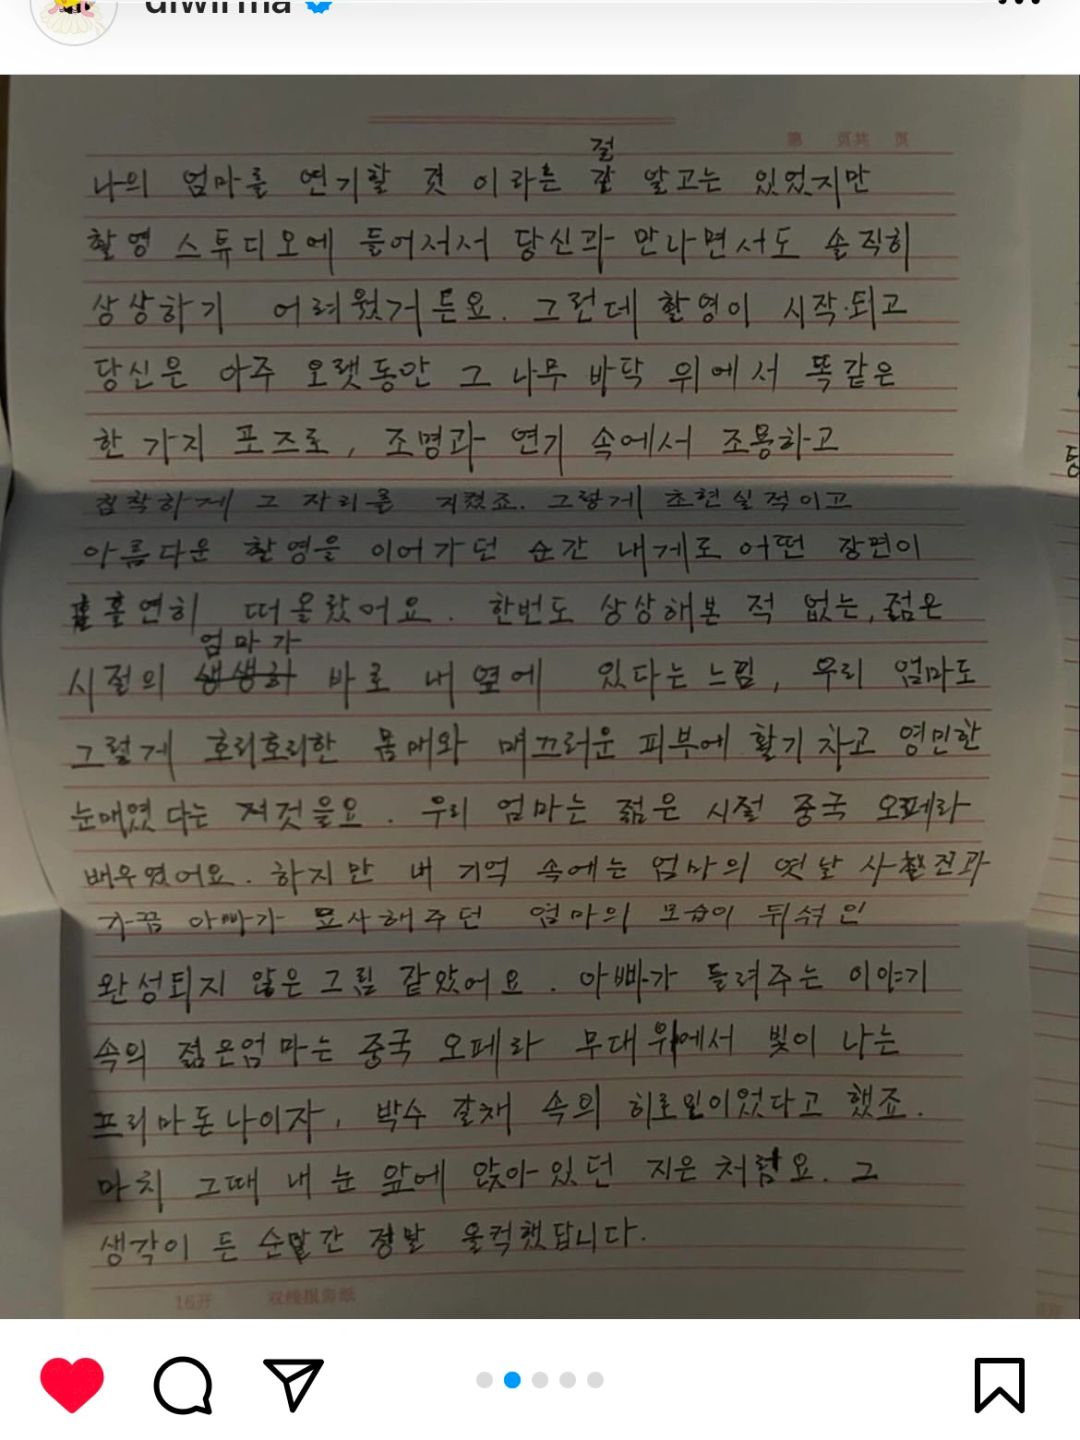 diwirma
第 页共 页
절
나의 엄마를 연기할 것 이라는 갈 알고는 있었지만
촬영 스튜디오에 들어서서 당신과 만나면서도 솔직히
상상하기 어려웠거든요. 그런데 촬영이 시작되고
당신은 아주 오랫동안 그 나무 바닥 위에서 똑같은
한 가지 포즈로, 조명과 연기 속에서 조용하고
침착하게 그 자리를 지켰죠. 그렇게 초현실적이고
아름다운 촬영을 이어가던 순간 내게로 어떤 장면이
홀연히 떠올랐어요. 한번도 상상해본 적 없는, 젊은
엄마가
시절의 생생히 바로 내 옆에 있다는 느낌, 우리 엄마도
그렇게 호리호리한 몸매와 매끄러운 피부에 활기차고 영민한
눈매였다는 저것을요. 우리 엄마는 젊은 시절 중국 오페라
배우였어요. 하지만 내 기억 속에는 엄마의 옛날 사진과
가끔 아빠가 묘사해주던 엄마의 모습이 뒤섞인
완성되지 않은 그림 같았어요. 아빠가 들려주는 이야기
속의 젊은엄마는 중국 오페라 무대 위에서 빛이 나는
프리마돈나이자, 박수 갈채 속의 히로인이었다고 했죠.
마치 그때 내 눈 앞에 앉아있던 지은처럼요. 그
생각이 든 순간 정말 울컥했답니다.
16开 双线报告纸